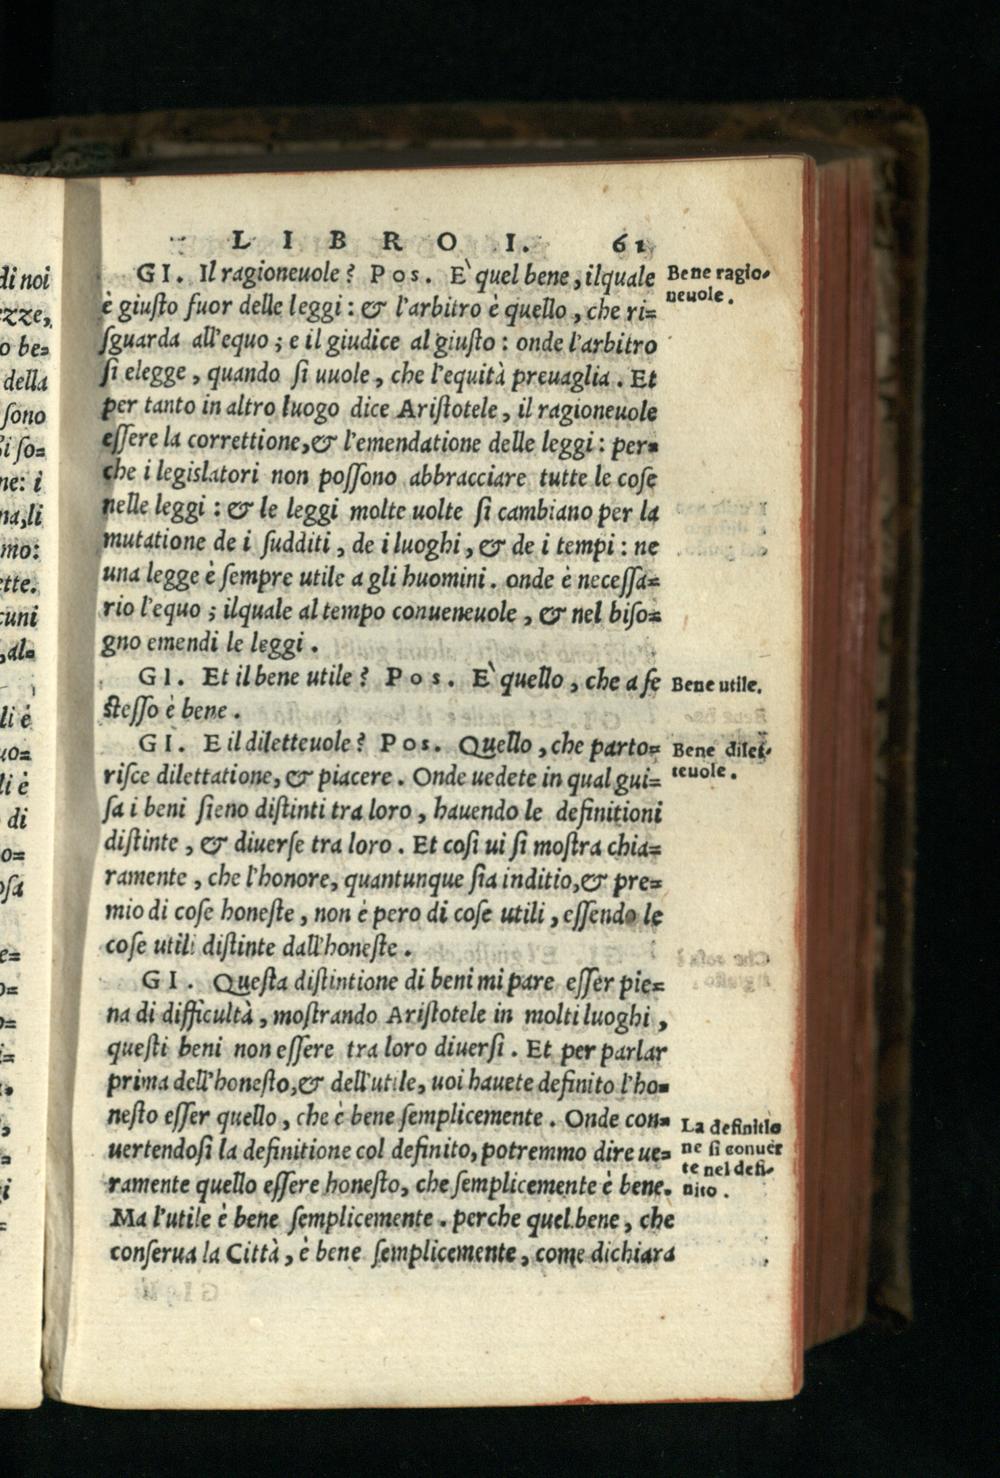 LIBRO I. 61
GI. Il ragioneuole? Pos. È quel bene, ilquale
è giuſto fuor delle leggi: & l'arbitro è quello, che ri=
ſguarda all'equo; e il giudice al giuſto: onde l'arbitro
ſi elegge, quando ſi uuole, che l'equità preuaglia. Et
per tanto in altro luogo dice Ariſtotele, il ragioneuole
eſſere la correttione, & l'emendatione delle leggi: per=
che i legislatori non poſſono abbracciare tutte le coſe
nelle leggi: & le leggi molte uolte ſi cambiano per la
mutatione de i ſudditi, de i luoghi, & de i tempi: ne
una legge è ſempre utile a gli huomini. onde è neceſſa=
rio l'equo; ilquale al tempo conueneuole, & nel biſo=
gno emendi le leggi.
GI. Et il bene utile? Pos. È quello, che a ſe
ſteſſo è bene.
GI. E il diletteuole? Pos. Quello, che parto=
riſce dilettatione, & piacere. Onde uedete in qual gui=
ſa i beni ſieno diſtinti tra loro, hauendo le definitioni
diſtinte, & diuerſe tra loro. Et coſi ui ſi moſtra chia=
ramente, che l'honore, quantunque ſia inditio, & pre=
mio di coſe honeſte, non è pero di coſe utili, eſſendo le
coſe utili diſtinte dall'honeſte.
GI. Queſta diſtintione di beni mi pare eſſer pie=
na di difficultà, moſtrando Ariſtotele in molti luoghi,
queſti beni non eſſere tra loro diuerſi. Et per parlar
prima dell'honeſto, & dell'utile, uoi hauete definito l'ho=
neſto eſſer quello, che è bene ſemplicemente. Onde con=
uertendoſi la definitione col definito, potremmo dire ue=
ramente quello eſſere honeſto, che ſemplicemente è bene.
Ma l'utile è bene ſemplicemente. perche quel bene, che
conſerua la Città, è bene ſemplicemente, come dichiara
Bene ragio=
neuole.
Bene utile.
Bene dilet=
teuole.
La definitio
ne ſi conuer
te nel defi=
nito.
di noi
ezze,
o be=
della
ſono
i ſo=
ne: i
na, li
mo:
ette.
cuni
, al=
li è
uo=
li è
di
o=
oſa
e=
o=
o=
i=